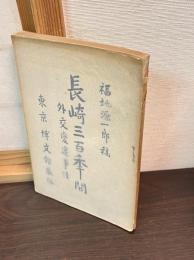 福地源一郎稿
長崎三百年間
外交変遷事情
東京博文館蔵版